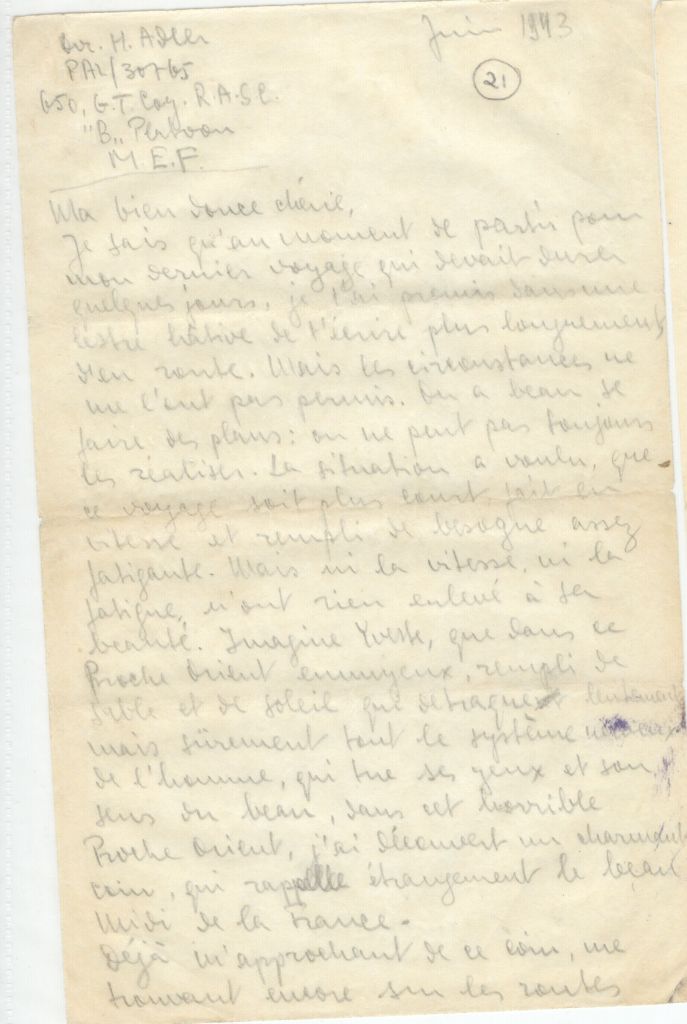 Dvr. H. Adler
PAL/30765
650, G.T. Coy. R.A.S.C.
"B" Platoon
M.E.F.
Juin 1943
21
Ma bien douce chérie,
Je sais qu'au moment de partir pour
mon dernier voyage qui devait durer
quelques jours, je t'ai promis dans une
lettre hâtive de t'écrire plus longuement,
d'en route. Mais les circonstances ne
me l'ont pas permis. On a beau se
faire des plans: on ne peut pas toujours
les réaliser. La situation a voulu, que
ce voyage soit plus court, fait en
vitesse et rempli de besogne assez
fatigante. Mais ni la vitesse, ni la
fatigue, n'ont rien enlevé à sa
beauté. Imagine Yvette, que dans ce
Proche Orient ennuyeux, rempli de
sable et de soleil qui detraquent lentement
mais sûrement tout le système nerveux
de l'homme, qui tue ses yeux et son
sens du beau, dans cet horrible
Proche Orient, j'ai découvert un charmant
coin, qui rappelle étrangement le beau
Midi de la France.
Déjà m'approchant de ce coin, me
trouvant encore sur les routes